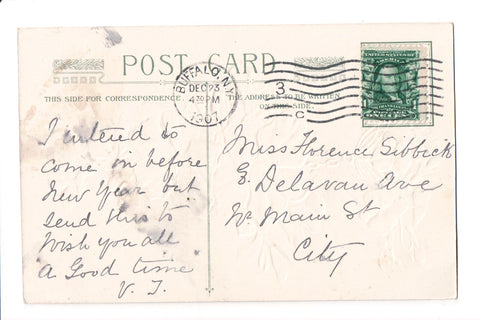 POST CARD
THIS SIDE FOR CORRESPONDENCE.
THE ADDRESS TO BE WRITTEN
ON THIS SIDE.
BUFFALO, N.Y.
DEC 23
4 30 PM
1907
3
C
I intened to
come in before
New Year but
send this to
Wish you all
"A Good time"
V. I.
Miss Florence Sibbick
E. Delavan Ave
Nr Main St
City